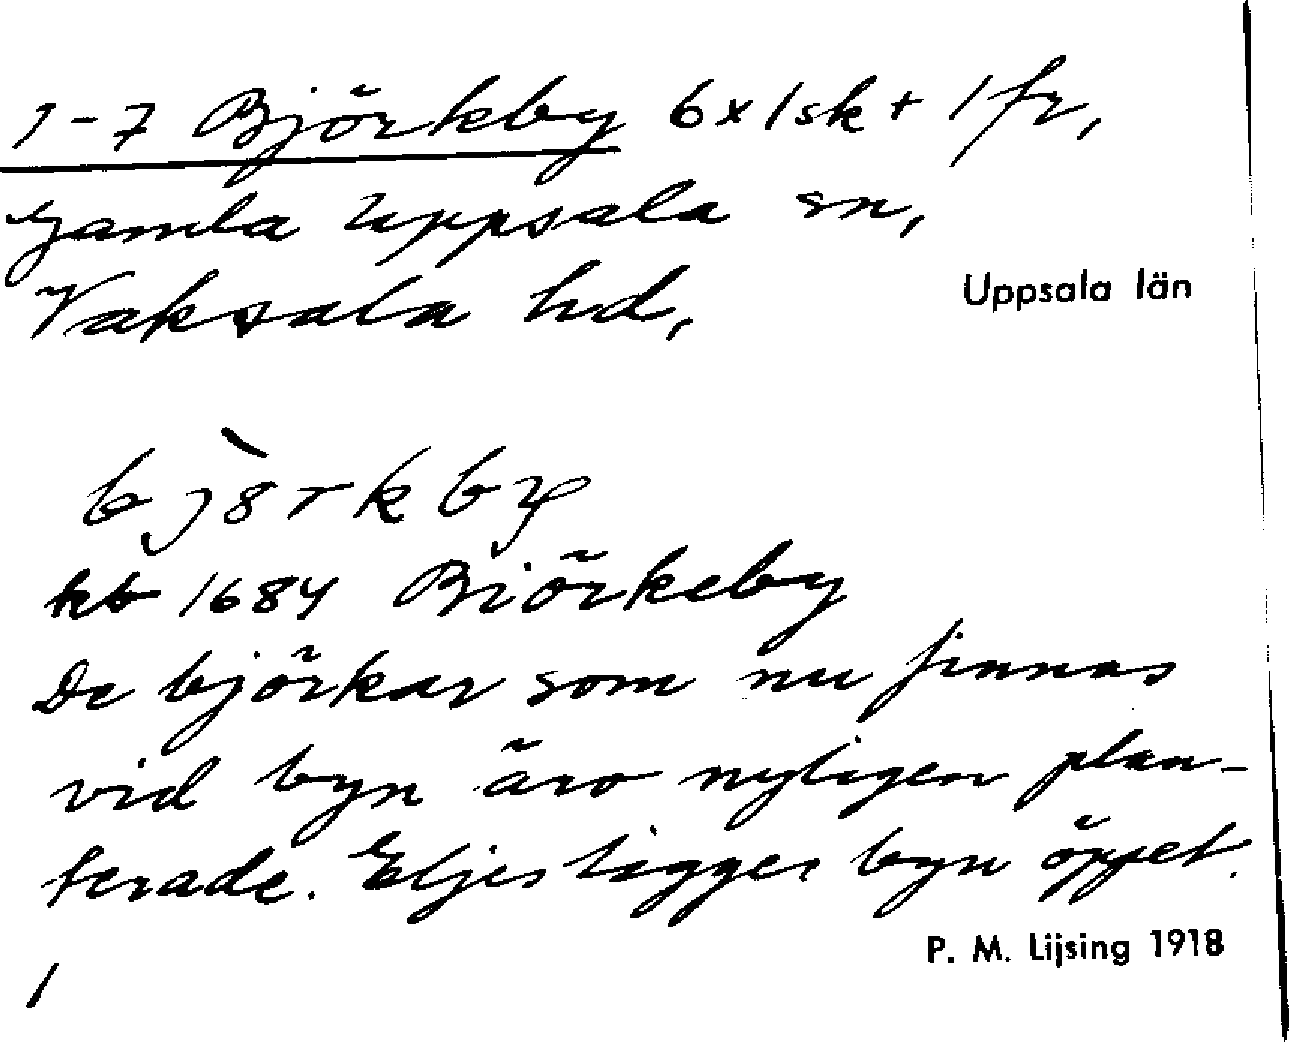 1-7 Björkby 6x1sk + 1fr,
Gamla Uppsala sn,
Vaksala hd,
Uppsala län
bjö̀rkby
kb 1684 Biörkeby
De björkar som nu finnas
vid byn äro nyligen plan-
terade. Eljes ligger byn öppet.
P. M. Lijsing 1918
1